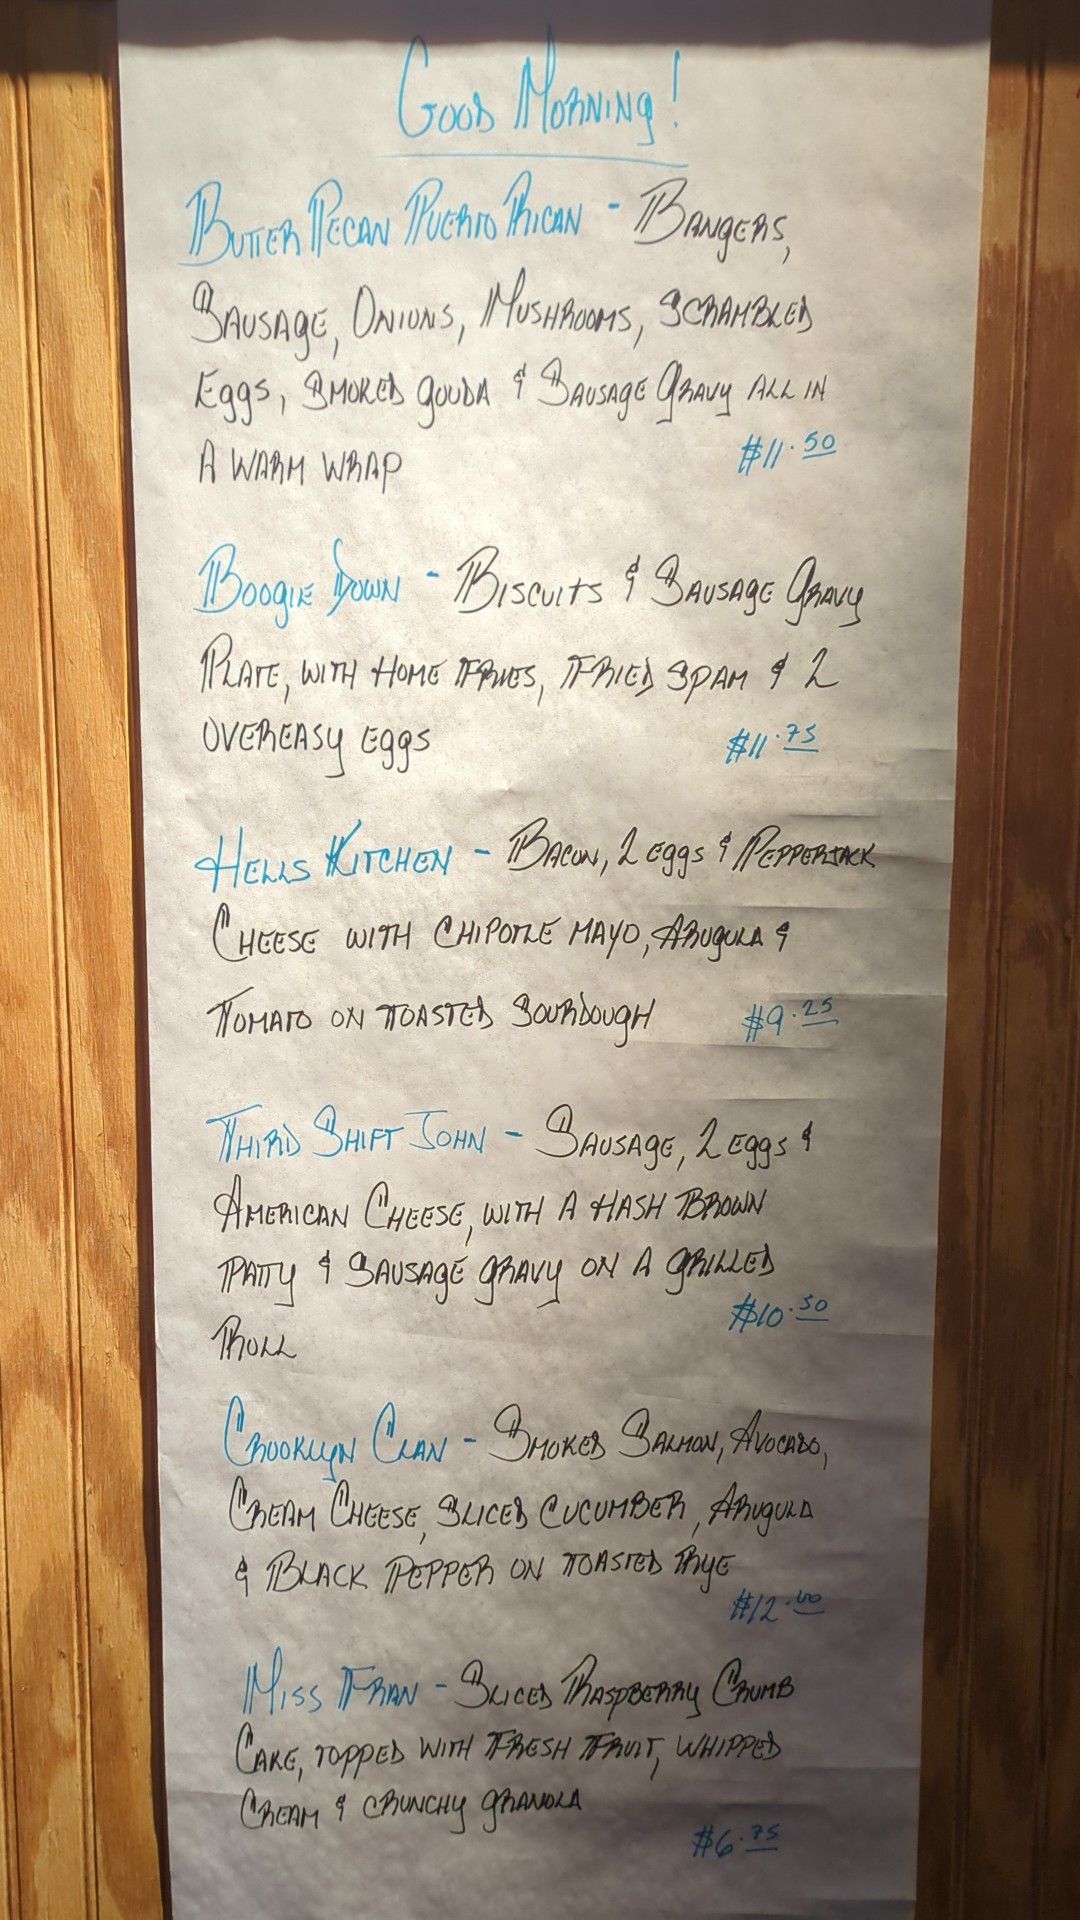 GOOD MORNING!
BUTTER PECAN PUERTO RICAN - BANGERS,
SAUSAGE, ONIONS, MUSHROOMS, SCRAMBLED
EGGS, SMOKED GOUDA & SAUSAGE GRAVY ALL IN
A WARM WRAP $11.50
BOOGIE DOWN - BISCUITS & SAUSAGE GRAVY
PLATE, WITH HOME FRIES, FRIED SPAM & 2
OVEREASY EGGS $11.75
HELLS KITCHEN - BACON, 2 EGGS & PEPPERJACK
CHEESE WITH CHIPOTLE MAYO, ARUGULA &
TOMATO ON TOASTED SOURDOUGH $9.25
THIRD SHIFT JOHN - SAUSAGE, 2 EGGS &
AMERICAN CHEESE, WITH A HASH BROWN
PATTY & SAUSAGE GRAVY ON A GRILLED
ROLL $10.50
CROOKLYN CLAN - SMOKED SALMON, AVOCADO,
CREAM CHEESE, SLICED CUCUMBER, ARUGULA
& BLACK PEPPER ON TOASTED RYE
$12.00
MISS FRAN - SLICED RASPBERRY CRUMB
CAKE, TOPPED WITH FRESH FRUIT, WHIPPED
CREAM & CRUNCHY GRANOLA
$6.75